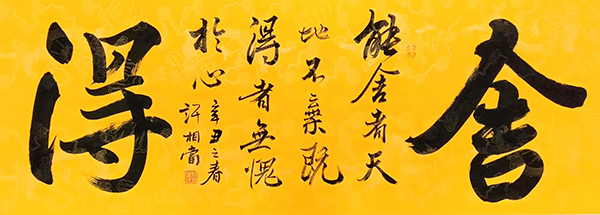 舍
能舍者天
地不棄既
得者無愧
於心 辛丑之春
許相當
得